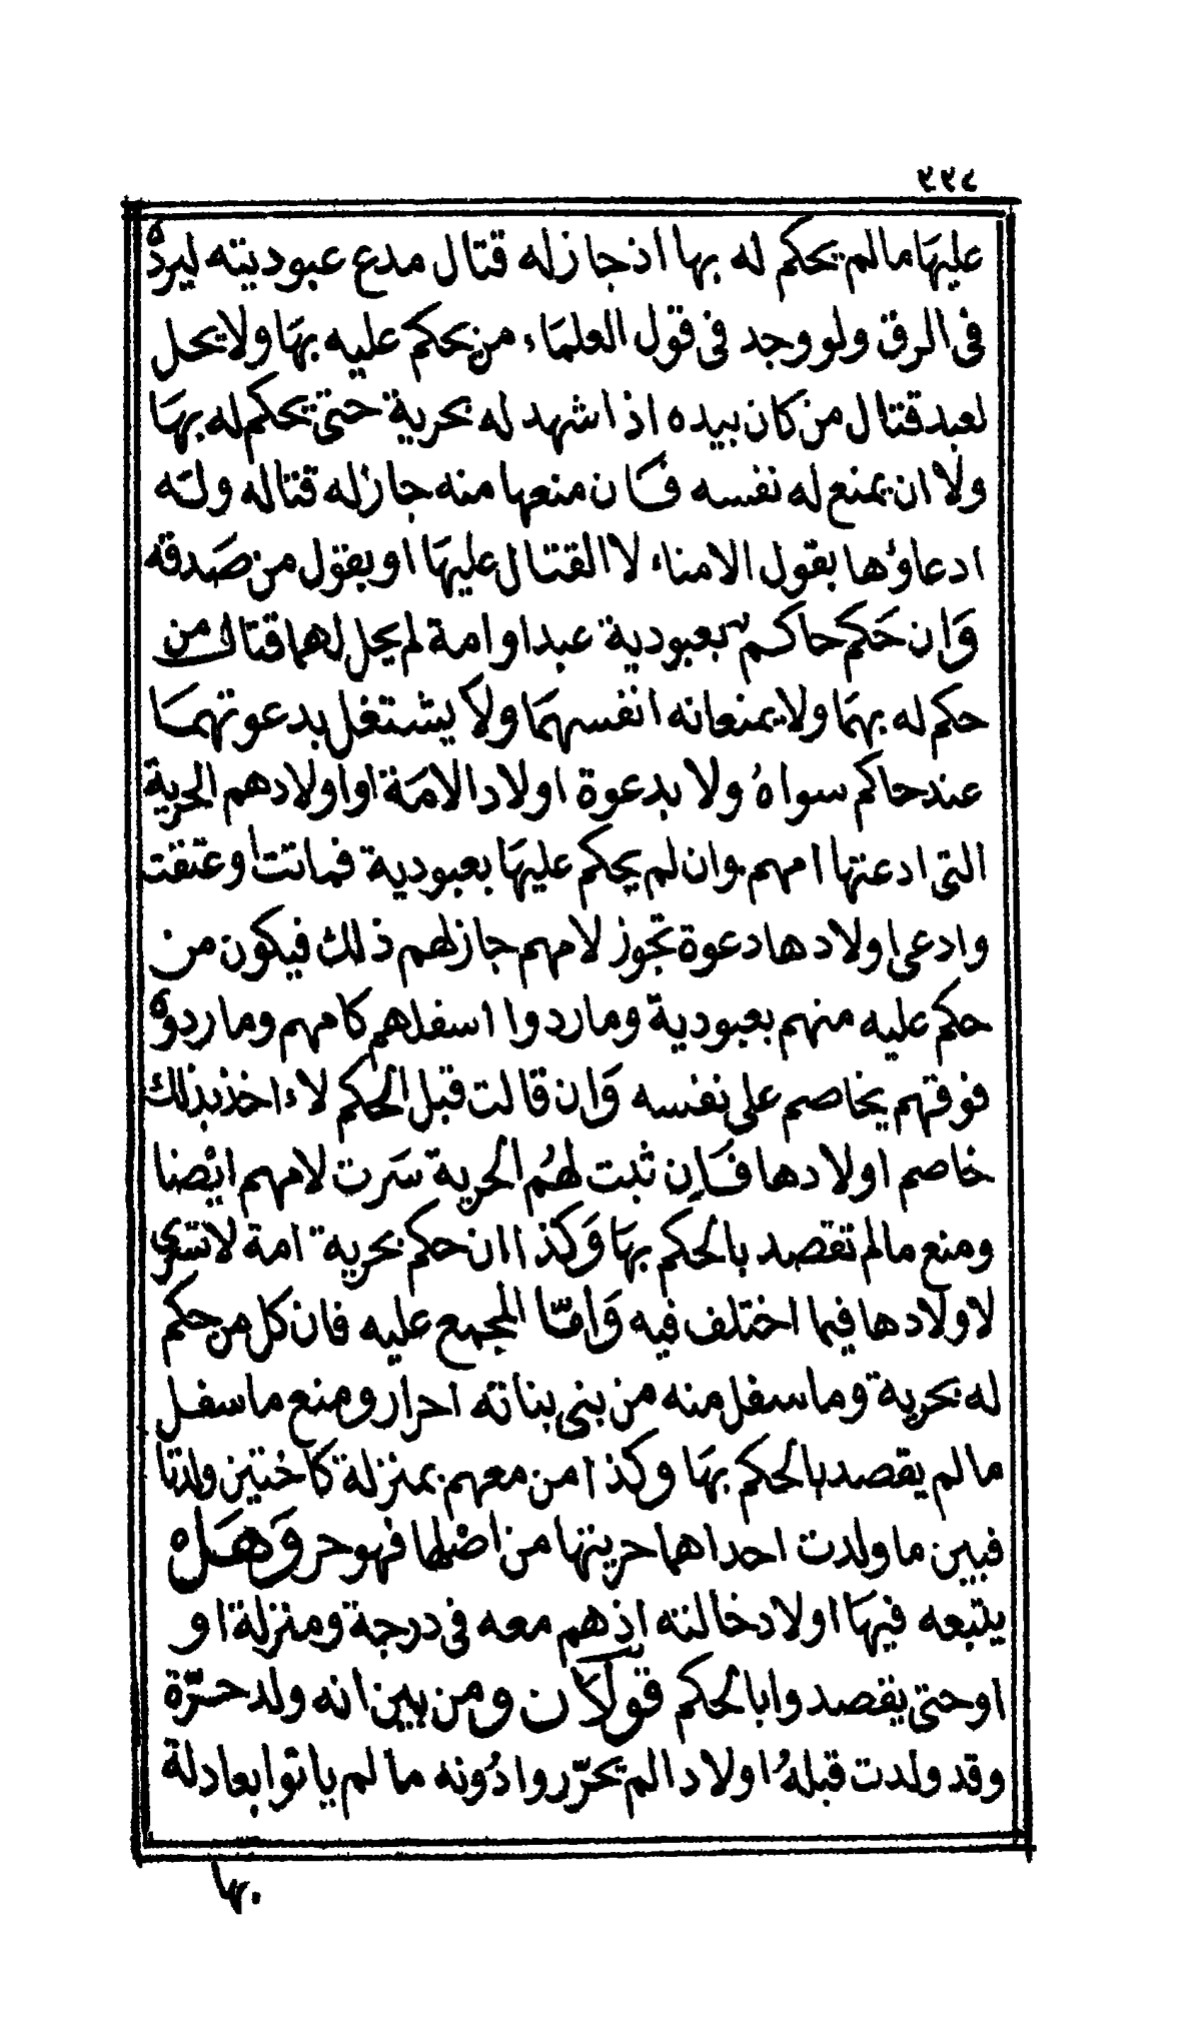 ٢٢٨
عليهَا مالم يحكم له بها اذ جازله قتال مدع عبوديته ليردّه
فى الرق ولو وجد فى قول العلمَاء من يحكم عليه بهَا ولا يحل
لعبد قتال من كان بيده اذا شهد له بحرية حتى يحكم له بهَا
ولا ان يمنع له نفسه فَان منعها منه جازله قتاله ولَه
ادعاؤها بقول الامناء لا القتال عليهَا او بقول من صَدقه
وَان حَكم حاكم بعبودية عبد او امة لم يحل لهما قتال من
حكم له بهمَا ولا يمنعانه انفسهمَا ولا يشتغل بدعوتهمَا
عند حاكم سواهُ ولا بدعوة اولاد الامَة او اولادهم الحرية
التى ادعتها امهم وان لم يحكم عليهَا بعبودية فماتت او عتقت
وادعى اولادها دعوة تجوز لامهم جازلهم ذلك فيكون من
حكم عليه منهم بعبودية وما ردوا اسفلهم كامهم وما ردوه
فوقهم يخاصم على نفسه وَان قالت قبل الحكم لاءاخذ بذلك
خاصم اولادها فَان ثبت لهُم الحرية سَرت لامهم ايْضا
ومنع مالم تقصد بالحكم بهَا وَكذا ان حكم بحرية امة لا تسرى
لاولادها فيما اختلف فيه وَامّا المجمع عليه فان كل من حكم
له بحرية وما سفل منه من بنى بناته احرار ومنع ما سفل
ما لم يقصد بالحكم بهَا وكذا من معهم بمنزلة كاختين ولدتا
فبين ما ولدت احداهما حريتها من اصْلها فهو حر وَهَل
يتبعه فيهَا اولاد خالته اذ هم معه فى درجة ومنزلة او
او حتى يقصدوا بالحكم قولَان ومن بين انه ولد حرّة
وقد ولدت قبلهُ اولادا لم تحرّروا دُونه ما لم ياتوا بعادلة
بها